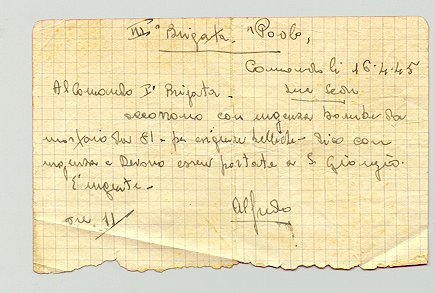 III° Brigata "Paolo"
Comando li 16.4.45
Al Comando I° Brigata -
occorrono con urgenza bombe da
mortaio da 81 - per esigenze belliche - Dico con
urgenza e devono essere portate a S. Giorgio.
È urgente -
Alfredo
ore 11